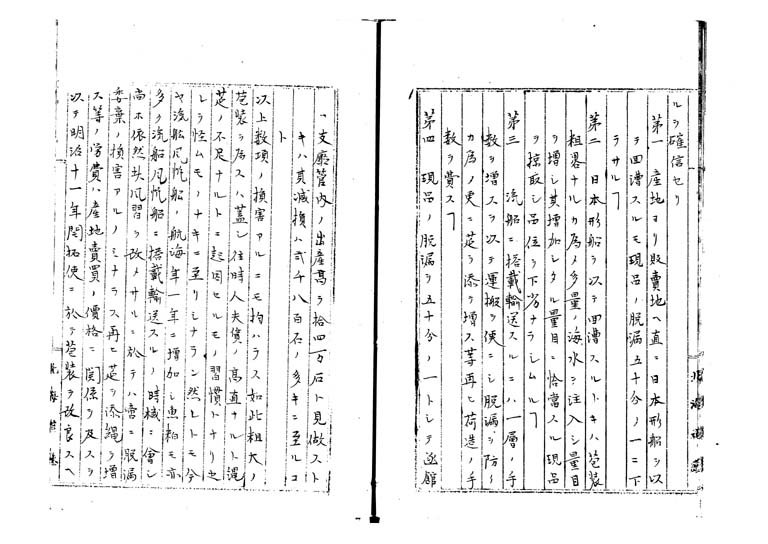 ルヲ確信セリ
第一 産地ヨリ販賣地ヘ直ニ日本形船ヲ以
テ回漕スルモ現品ノ脱漏五十分ノ一ニ下
ラサルヿ
第二 日本形船ヲ以テ回漕スルトキハ苞装
粗畧ナルカ為ノ多量ノ海水ヲ注入シ量目
ヲ増シ其増加シタル量目ニ恰當スル現品
ヲ掠取シ品位ヲ下劣ナラシムルヿ
第三 汽船ニ搭載輸送スルニハ一層ノ手
数ヲ増スヲ以テ運搬ヲ便ニシ脱漏ヲ防ク
カ為ノ更ニ莚ヲ添ヘ増ス等再ヒ荷造ノ手
数ヲ費スヿ
第四 現品ノ脱漏ヲ五十分ノ一トシテ函館
支廳管内ノ出産高ヲ拾四万石ト見做スト
キハ其減損ハ弐千八百石ノ多キニ至ルコ
ト
以上数項ノ損害アルニモ拘ハラス如此粗大ノ
苞装ヲ為スハ蓋シ往時人夫賃ノ高直ナルト縄
莚ノ不足ナルトニ起因セルモノ習慣トナリ之
レヲ怪ムモノナキニ至リシナラン然レトモ今
ヤ汽船風帆船ノ航海年一年ニ増加シ魚粕モ亦
多ク汽船風帆船ニ搭載輸送スルノ時機ニ會シ
尚ホ依然扶風習ヲ改メサルニ於テハ啻ニ脱漏
委棄ノ損害アルノミナラス再ヒ莚ヲ添縄ヲ増
ス等ノ労費ハ産地賣買ノ價格ニ関係ヲ及スヲ
以テ明治十一年開拓使ニ於テ苞装ヲ改良スヘ